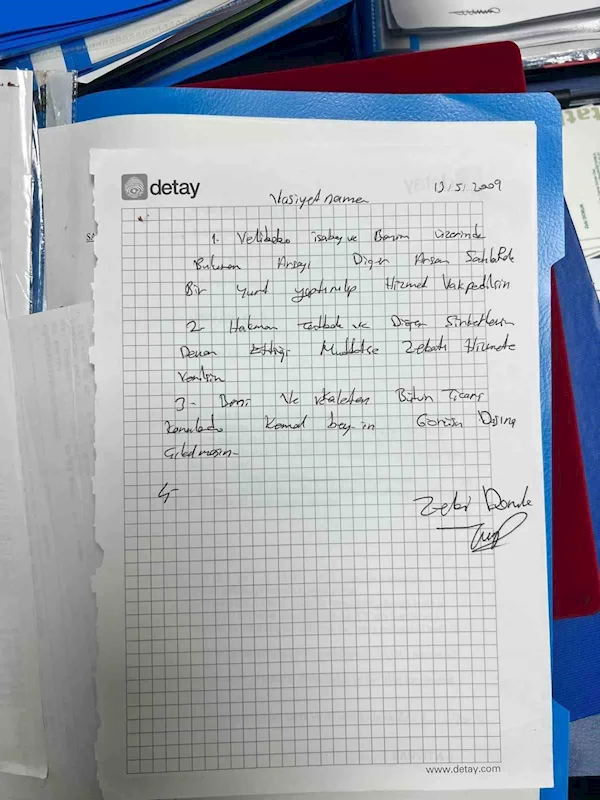 detay
Vasiyetname
12.5.2009
1. Velibaba isabey ve Benim üzerinde
Bulunan Arsayı Diğer Arsam Satılıpda
Bir yurt yaptırılıp Hizmet Vakfedilsin
2 Hakman ve Diğer Şirketlerin
Devam Ettiği Müddetce Zekatı Hizmete
Verilsin
3- Beni Ve Bütün Ticari
Konularda Kemal bey-in Görüş Dışına
Çıkılmasın-
4-
Zeki
www.detay.com